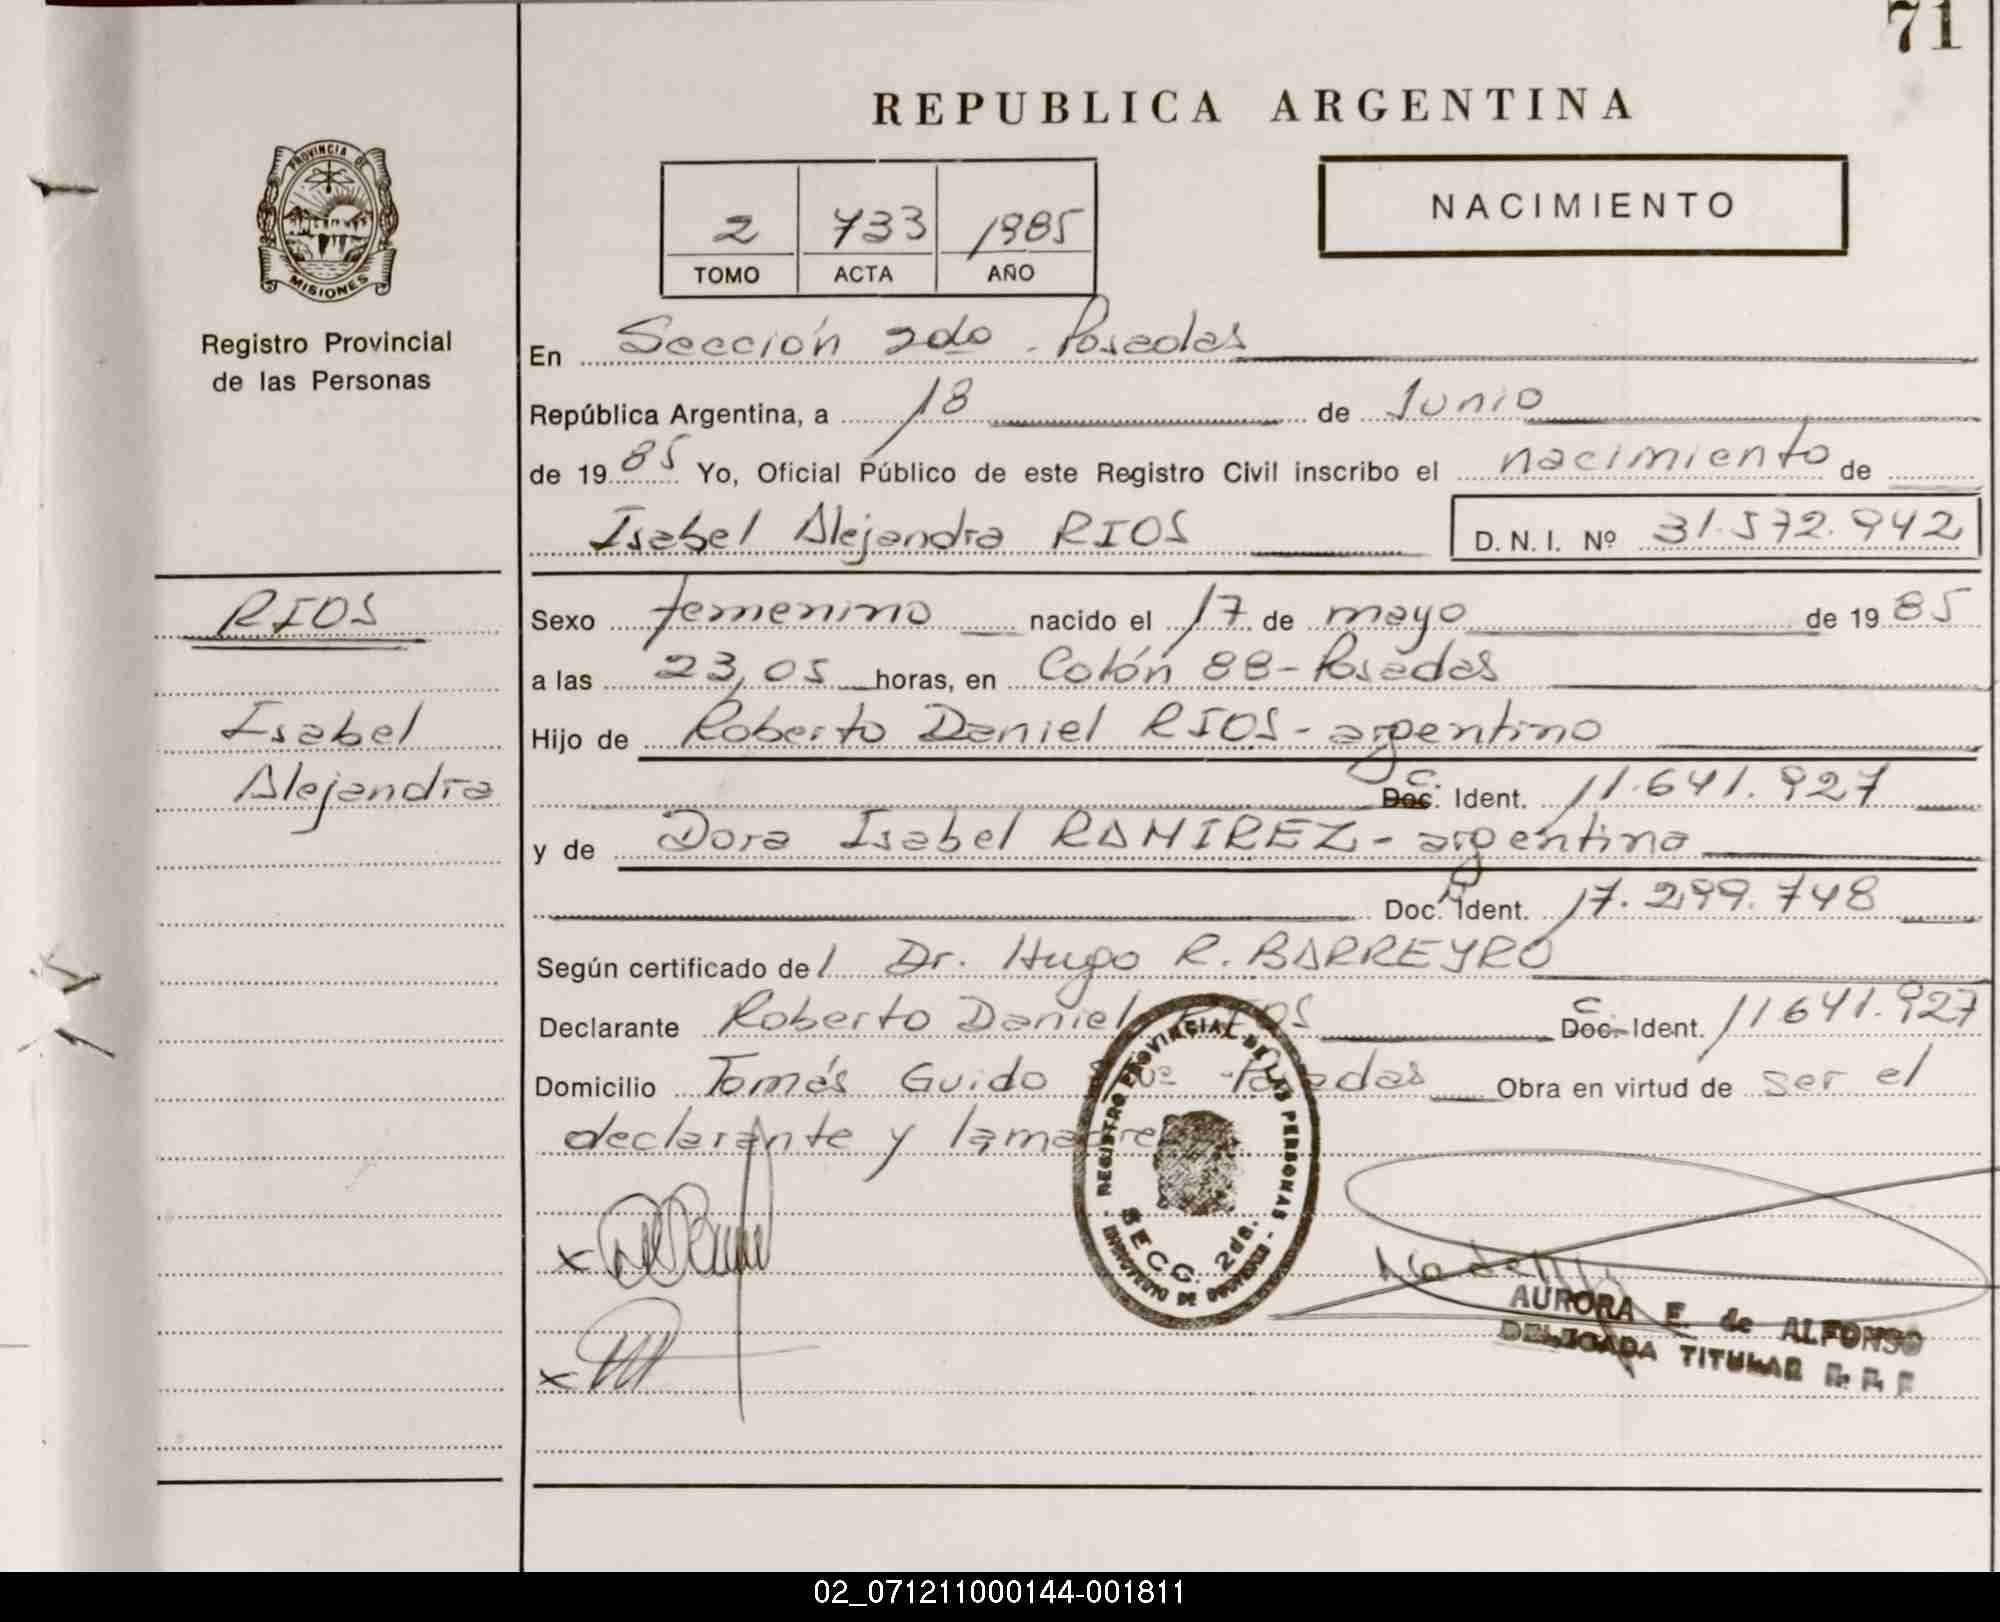 71
REPUBLICA ARGENTINA
PROVINCIA DE
MISIONES
Registro Provincial
de las Personas
2 733 1985
TOMO ACTA AÑO
NACIMIENTO
En Sección 2do - Posadas
República Argentina, a 18 de Junio
de 1985 Yo, Oficial Público de este Registro Civil inscribo el nacimiento de
Isabel Alejandra RIOS D. N. I. Nº 31.572.942
RIOS
Isabel
Alejandra
Sexo femenino nacido el 17 de mayo de 1985
a las 23,05 horas, en Colón 88 - Posadas
Hijo de Roberto Daniel RIOS - argentino
Doc. C. Ident. 11.641.927
y de Dora Isabel RAMIREZ - argentina
Doc. Ident. 17.299.748
Según certificado del Dr. Hugo R. BARREYRO
Declarante Roberto Daniel RIOS Doc. C Ident. 11641.927
Domicilio Tomás Guido Posadas Obra en virtud de ser el
declarante y la madre
REGISTRO PROVINCIAL DE LAS PERSONAS
SECC. 2da.
AURORA E. de ALFONSO
DELEGADA TITULAR R. P. P
02_071211000144-001811